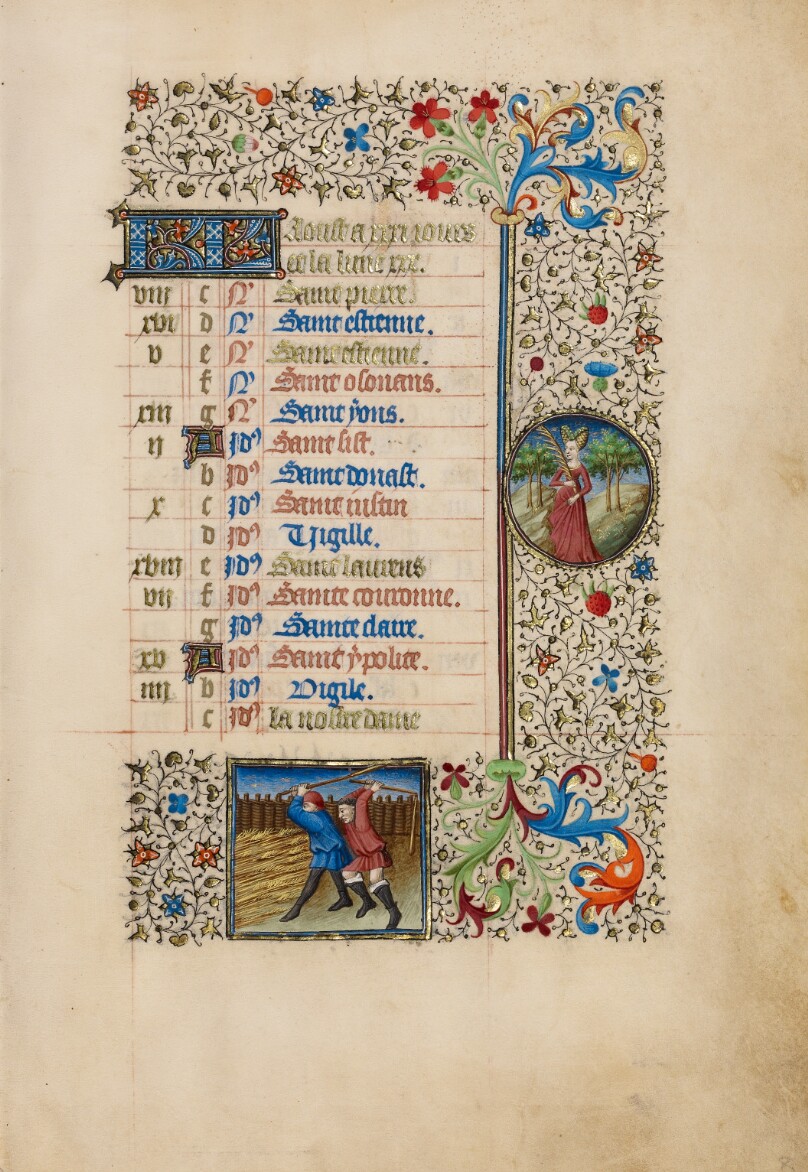 KL Aoust a xxxi iours
et la lune xxx.
viii c N' Saint pierre.
xvi d N' Saint estienne.
v e N' Saint estienne.
f N' Saint osouans.
xiii g N' Saint yons.
ii A id' Saint sist.
b id' Saint donast.
x c id' Saint iustin
d id' Vigille.
xviii e id' Saint laurens
vii f id' Sainte couronne.
g id' Sainte claire.
xv A id' Saint ypolite.
iiii b id' Vigile.
c id' la nostre dame